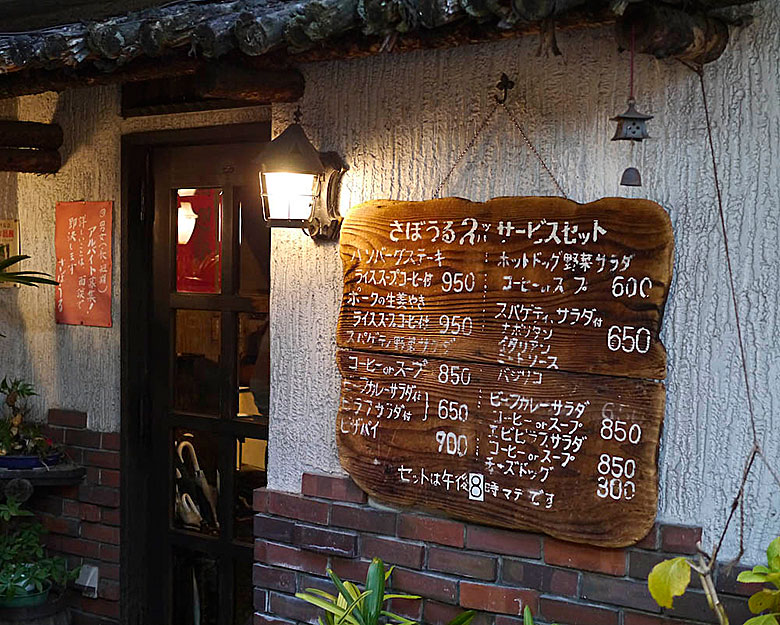 さぼうる2 サービスセット
ハンバーグステーキ
ライススープコーヒ付 950
ポークの生姜やき
ライススープコーヒ付 950
スパゲティ野菜サラダ
コーヒーorスープ 850
ビーフカレーサラダ付
ピラフサラダ付 650
ピザパイ 900
ホットドッグ野菜サラダ
コーヒーorスープ 600
スパゲティ,サラダ付
ナポリタン
イタリアン
ミートソース
バジリコ
650
ビーフカレーサラダ
コーヒーorスープ 850
エビピラフサラダ
コーヒーorスープ 850
チーズドッグ 300
セットは午後8時マデです
アルバイト募集!
即決します
さぼうる